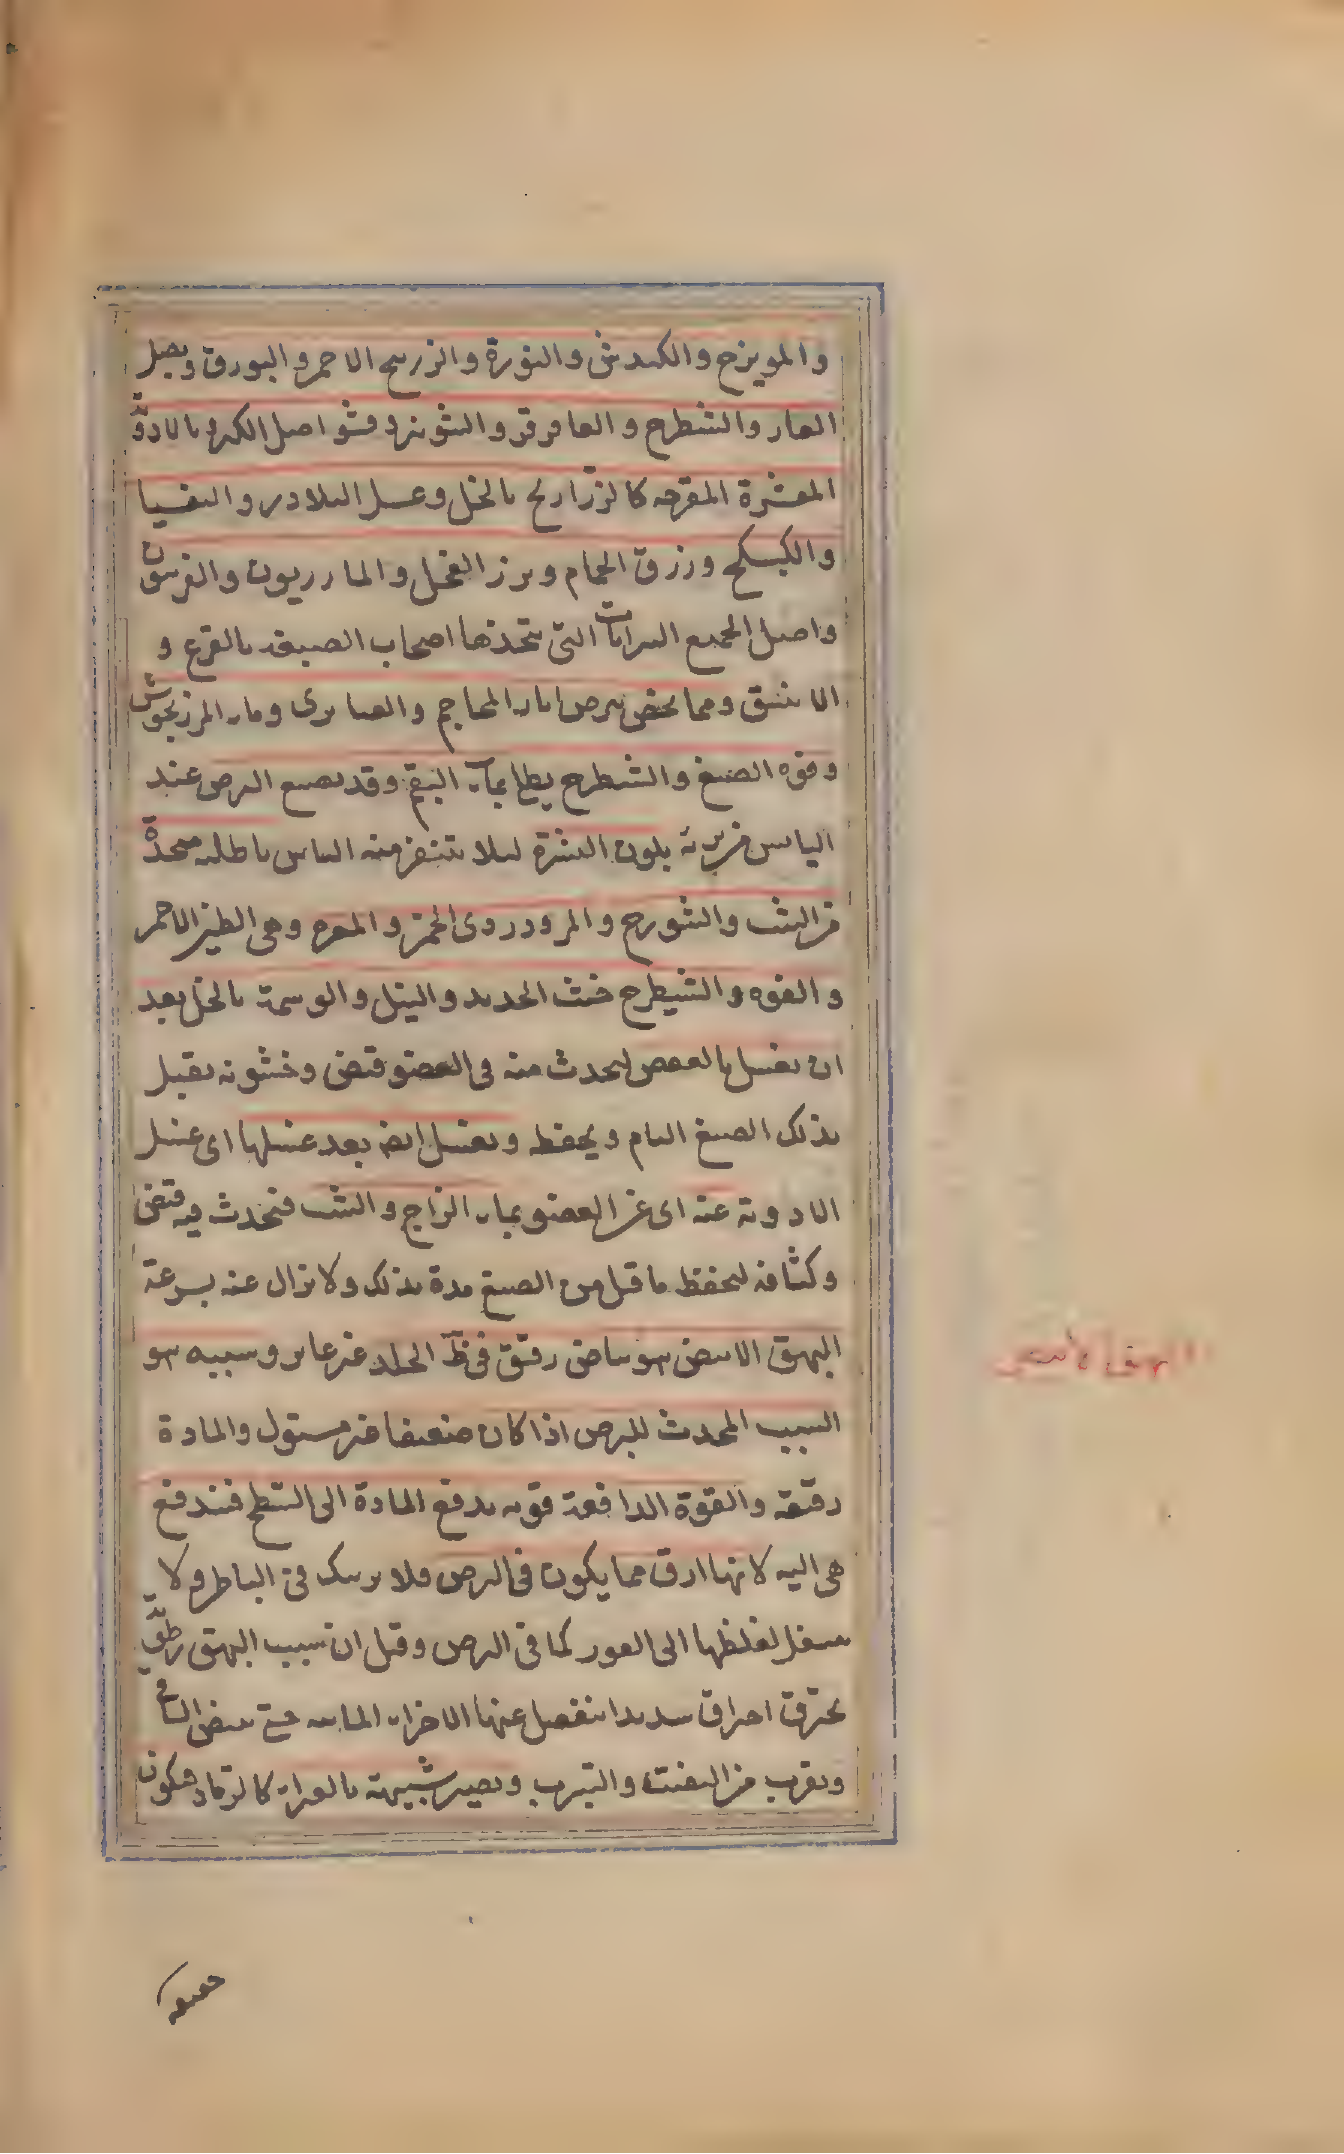 والمويزج والكندش والنورة والزرنيخ الاحمر والبورق وبصل
الفار والشطرج والعاقرقر والشونيز وقشو اصل الكبر وبالادوّ
المقشرة المقرحه كالذراريح بالخل وعسل البلادر والتفسيا
والكبيكج وزرق الحمام وبزر الفجل والمازريون والفربيون
واصل الجميع التي يتخذها اصحاب الصبيغه بالقرع و
الانبيق ومما يخفى برص اثار المحاجم والصابرى وماء المرزنجوش
وفوه الصبغ والشطرج يطلى بماء البقم وقد يصبغ البرص عند
الياس من برئه بلون البشرة لئلا يتنفر منه الناس باطليه متخذة
من الشب والشورج والمر ودردى الخمر والمغره وهى الطين الاحمر
والفوه والشيطرج خبث الحديد والنيل والوسمة بالخل بعد
ان يغسل بالعفص ليحدث منه فى العضو قبض وخشونه يقبل
بذلك الصبغ التام ويحفظه ويغسل ايضا بعد غسلها اى غسل
الادوية عنه اى عن العضو بماء الزاج والشب فيحدث فيه قبض
وكثافه ليحفظ ما قبل من الصبغ مدة بذلك ولا يزال عنه بسرعة
البهق الابيض هو بياض رقيق فى ظ الجلد غير غاير وسببه هو
السبب المحدث للبرص اذا كان ضعيفا غير مستول والمادة
رقيقه والقوة الدافعة قويه يدفع المادة الى السطح فيندفع
هى اليه لانها ارق مما يكون فى البرص فلا يرتبك فى الباطن ولا
يتسفل لغلظها الى الغور كما فى البرص وقيل ان سبب البهق
يحترق احراق شديدا ينفصل عنها الاجزاء المائيه حتى
ويقرب من التفتت والتترب ويصير شبيهة كالرماد فيكون
البهق الابيض